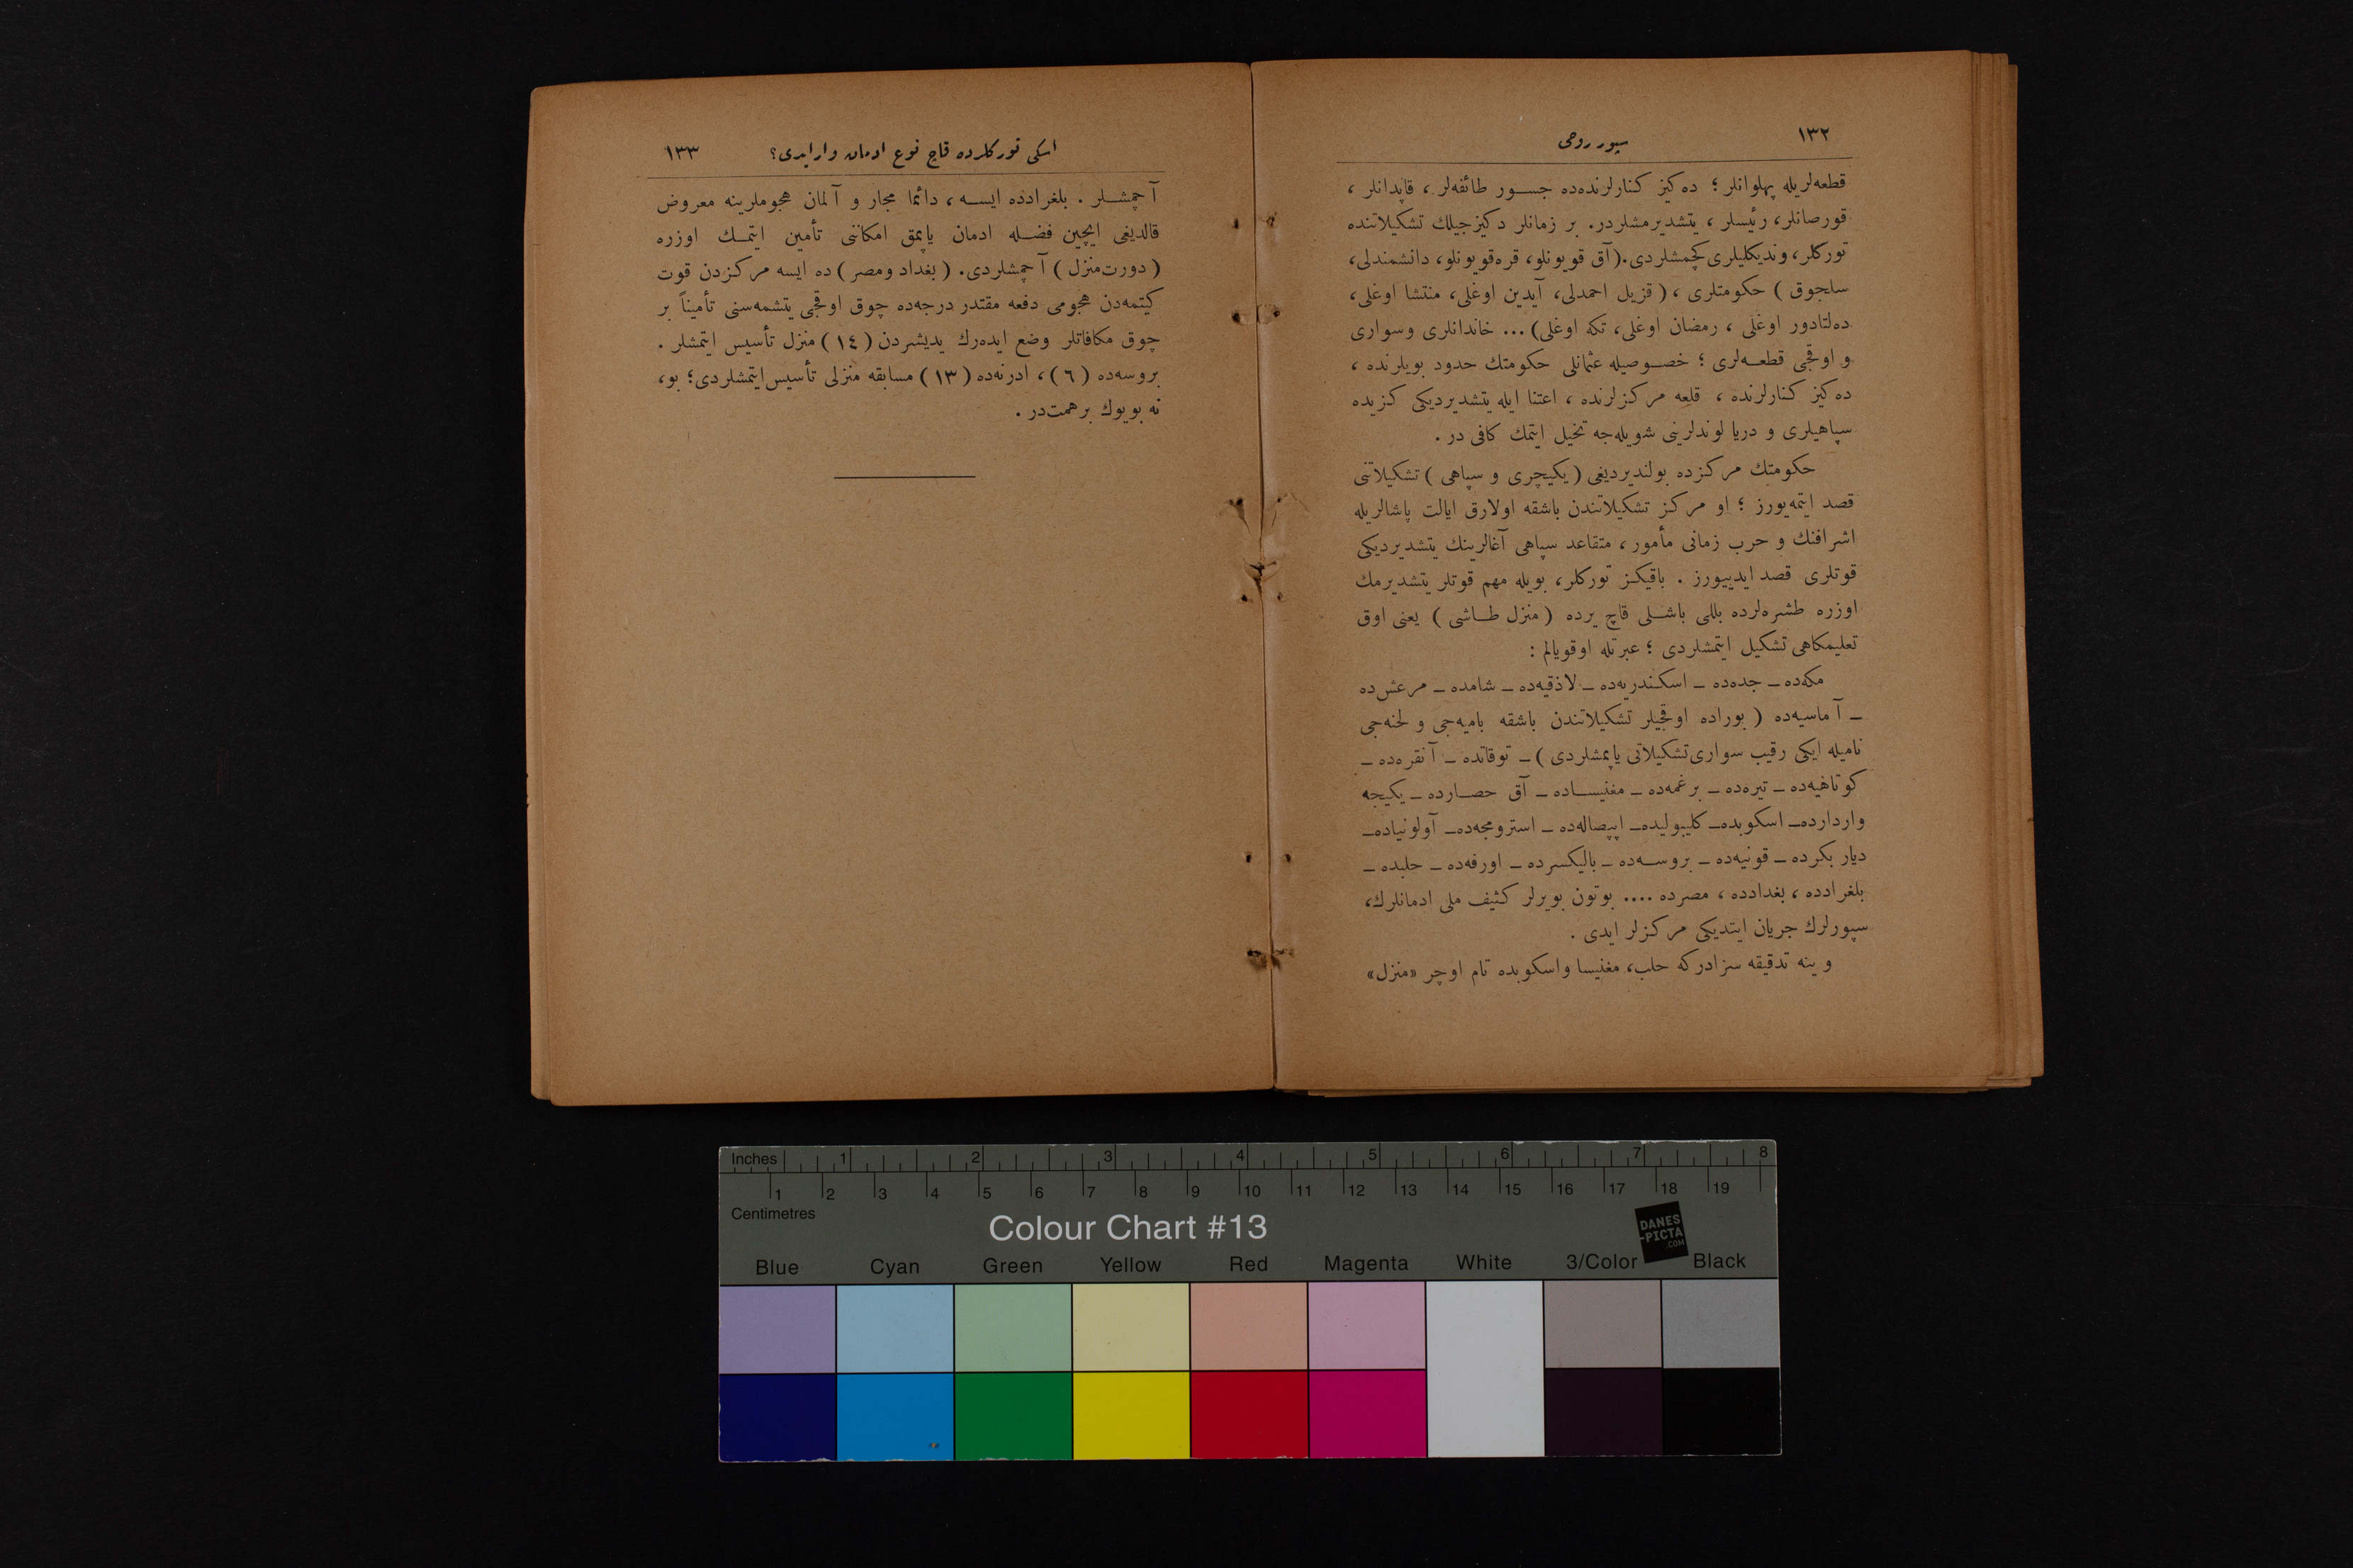 ١٣٢
سپور روحی
قطعه‌لریله پهلوانلر ؛ ده‌كیز كنارلرنده‌ده جسور طائفه‌لر ، قاپدانلر ،
قورصانلر ، رئیسلر ، یتشدیرمشلردر . بر زمانلر دكیزجیلك تشكیلاتنده
توركلر ، وندیكلیلری كچمشلردی . (آق قویونلو ، قره‌قویونلو ، دانشمندلی ،
سلجوق ) حكومتلری ، ( قزیل احمدلی ، آیدین اوغلی ، منتشا اوغلی ،
ده‌لتادور اوغلی ، رمضان اوغلی ، تكه اوغلی) ... خاندانلری وسواری
و اوقجی قطعه‌لری ؛ خصوصیله عثمانلی حكومتك حدود بویلرنده ،
ده‌كیز كنارلرنده ، قلعه مركزلرنده ، اعتنا ایله یتشدیردیكی كزیده
سپاهیلری و دریا لوندلرینی شویله‌جه تخیل ایتمك كافی در .
حكومتك مركزده بولندیردیغی ( یكیچری و سپاهی ) تشكیلاتنی
قصد ایتمه‌یورز ؛ او مركز تشكیلاتندن باشقه اولارق ایالت پاشالریله
اشرافنك و حرب زمانی مأمور ، متقاعد سپاهی آغالرینك یتشدیردیكی
قوتلری قصد ایدییورز . باقیكز توركلر ، بویله مهم قوتلر یتشدیرمك
اوزره طشره‌لرده بللی باشلی قاچ یرده ( منزل طاشی ) یعنی اوق
تعلیمكاهی تشكیل ایتمشلردی ؛ عبرتله اوقویالم :
مكه‌ده ـ جده‌ده ـ اسكندریه‌ده ـ لاذقیه‌ده ـ شامده ـ مرعش‌ده
ـ آماسیه‌ده ( بوراده اوقجیلر تشكیلاتندن باشقه بامیه‌جی و لحنه‌جی
نامیله ایكی رقیب سواری تشكیلاتی یاپمشلردی ) ـ توقاتده ـ آنقره‌ده ـ
كوتاهیه‌ده ـ تیره‌ده ـ برغمه‌ده ـ مغنیساده ـ آق حصارده ـ یكیجه
واردارده ـ اسكوبده ـ كلیبولیده ـ ایپصاله‌ده ـ استرومجه‌ده ـ آولونیاده ـ
دیار بكرده ـ قونیه‌ده ـ بروسه‌ده ـ بالیكسرده ـ اورفه‌ده ـ حلبده ـ
بلغرادده ، بغدادده ، مصرده .... بوتون بویرلر كثیف ملی ادمانلرك ،
سپورلرك جریان ایتدیكی مركزلر ایدی .
و ینه تدقیقه سزادركه حلب ، مغنیسا واسكوبده تام اوچر «منزل»
اسكی توركلرده قاچ نوع ادمان وارایدی؟
١٣٣
آچمشلر . بلغرادده ایسه ، دائما مجار و آلمان هجوملرینه معروض
قالدیغی ایچین فضله ادمان یاپمق امكاننی تأمین ایتمك اوزره
( دورت منزل ) آچمشلردی . ( بغداد ومصر ) ده ایسه مركزدن قوت
كیتمه‌دن هجومی دفعه مقتدر درجه‌ده چوق اوقجی یتشمه‌سنی تأمیناً بر
چوق مكافاتلر وضع ایده‌رك یدیشردن ( ١٤ ) منزل تأسیس ایتمشلر .
بروسه‌ده ( ٦ ) ، ادرنه‌ده ( ١٣ ) مسابقه منزلی تأسیس ایتمشلردی ؛ بو ،
نه بویوك برهمت‌در .
Inches 1 2 3 4 5 6 7 8
1 2 3 4 5 6 7 8 9 10 11 12 13 14 15 16 17 18 19
Centimetres
Colour Chart #13
DANES
-PICTA
.COM
Blue Cyan Green Yellow Red Magenta White 3/Color Black